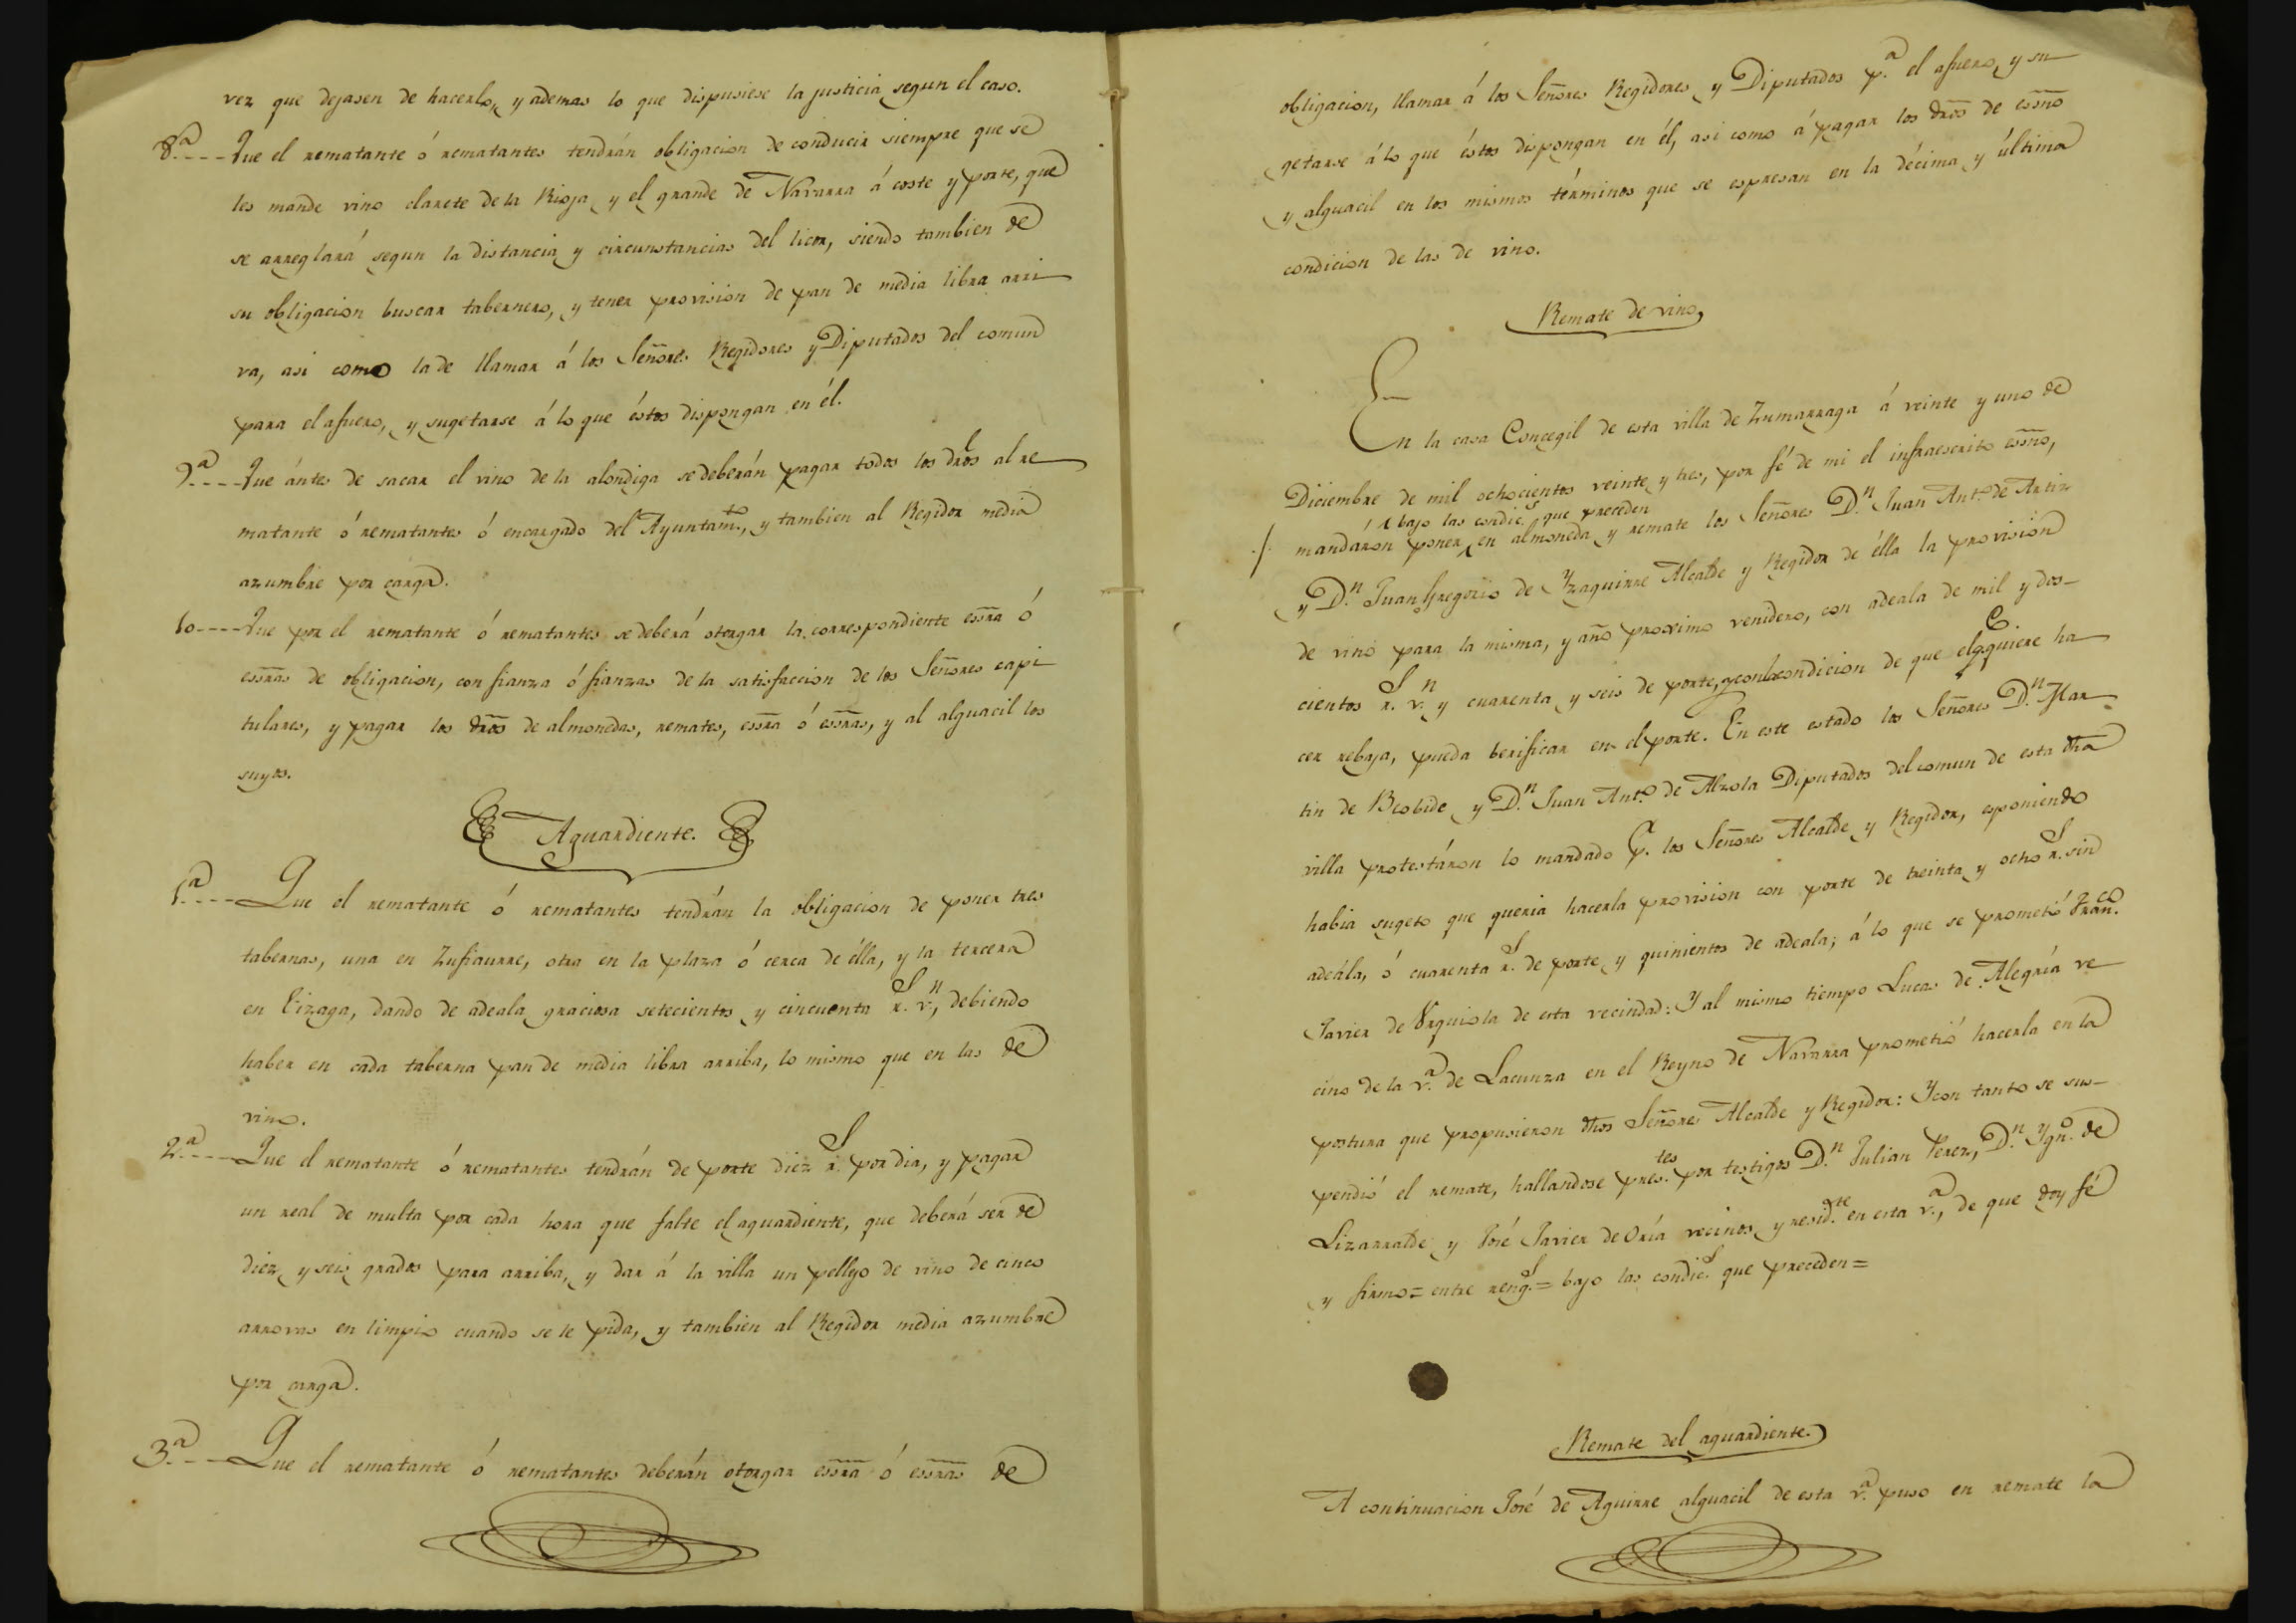 vez que dejasen de hacerlo, y ademas lo que dispusiese la justicia segun el caso.
8.ª---- Que el rematante ó rematantes tendrán obligacion de conducir siempre que se
les mande vino clarete de la Rioja y el grande de Navarra á coste y porte, que
se arreglará segun la distancia y circunstancias del licor, siendo tambien de
su obligacion buscar tabernero, y tener provision de pan de media libra arri
va, asi como la de llamar á los Señores Regidores y Diputados del comun
para el afuero, y sugetarse á lo que éstos dispongan en él.
9.ª---- Que ántes de sacar el vino de la alondiga se deberán pagar todos los dros al re
matante ó rematantes ó encargado del Ayuntam.to, y tambien al Regidor media
azumbre por carga.
10---- Que por el rematante ó rematantes se deberá otorgar la correspondiente essra ó
essras de obligacion, con fianza ó fianzas de la satisfaccion de los Señores capi
tulares, y pagar los dros de almonedas, remates, essra ó essras, y al alguacil los
suyos.
Aguardiente.
1.ª---- Que el rematante ó rematantes tendrán la obligacion de poner tres
tabernas, una en Zufiaurre, otra en la plaza ó cerca de élla, y la tercera
en Eizaga, dando de adeala graciosa setecientos y cincuenta r.s v.n, debiendo
haber en cada taberna pan de media libra arriba, lo mismo que en las de
vino.
2.ª---- Que el rematante ó rematantes tendrán de porte diez r.s por dia, y pagar
un real de multa por cada hora que falte el aguardiente, que deberá ser de
diez y seis grados para arriba, y dar á la villa un pellejo de vino de cinco
arrovas en limpio cuando se le pida, y tambien al Regidor media azumbre
por carga.
3.ª---- Que el rematante ó rematantes deberán otorgar essra ó essras de
obligacion, llamar á los Señores Regidores y Diputados p.ª el afuero, y su
getarse á lo que éstos dispongan en él, asi como á pagar los dros de essno
y alguacil en los mismos términos que se espresan en la décima y última
condicion de las de vino.
Remate de vino
En la casa Concegil de esta villa de Zumarraga á veinte y uno de
Diciembre de mil ochocientos veinte y tres, por fé de mi el infraescrito essno,
bajo las condic.s que preceden
mandáron poner en almoneda y remate los Señores D.n Juan Ant.o de Artiz
y D.n Juan Gregorio de Yzaguirre Alcalde y Regidor de élla la provision
de vino para la misma, y año proximo venidero, con adeala de mil y dos-
cientos r.s v.n y cuarenta y seis de porte, y con la condicion de que el q.e quiere ha
cer rebaja, pueda berificar en el porte. En este estado los Señores D.n Mar
tin de Beobide y D.n Juan Ant.o de Alzola Diputados del comun de esta dha
villa protestáron lo mandado p.r los Señores Alcalde y Regidor, esponiendo
habia sugeto que queria hacer la provision con porte de treinta y ocho r.s sin
adeála, ó cuarenta r.s de porte y quinientos de adeala; á lo que se prometió Fran.co
Javier de Urquiola de esta vecindad: Y al mismo tiempo Lucas de Alegría ve
cino de la v.ª de Lacunza en el Reyno de Navarra prometió hacerla en la
postura que propusieron dhos Señores Alcalde y Regidor: Y con tanto se sus-
pendió el remate, hallandose pres.tes por testigos D.n Julian Perez, D.n Ygn.o de
Lizarralde y José Javier de Oría vecinos y resid.te en esta v.ª, de que doy fé
y firmo = entre reng.s = bajo las condic.s que preceden =
Remate del aguardiente.
A continuacion José de Aguirre alguacil de esta v.ª puso en remate la